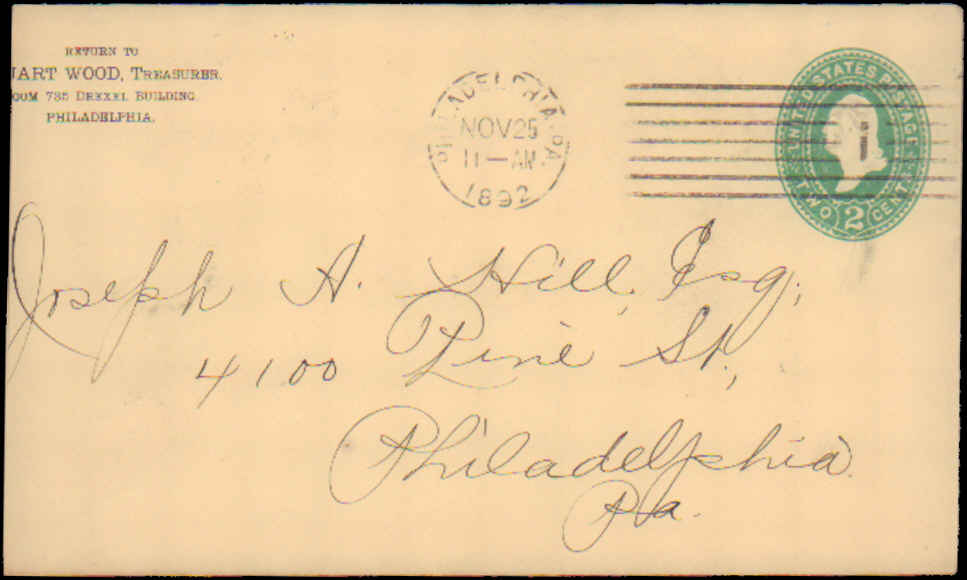 RETURN TO
UART WOOD, TREASURER.
OOM 735 DREXEL BUILDING
PHILADELPHIA.
PHILADELPHIA, PA
NOV 25
11—AM
1892
1
UNITED STATES POSTAGE
TWO 2 CENTS
Joseph A. Hill, Esq,
4100 Pine St.,
Philadelphia
Pa.